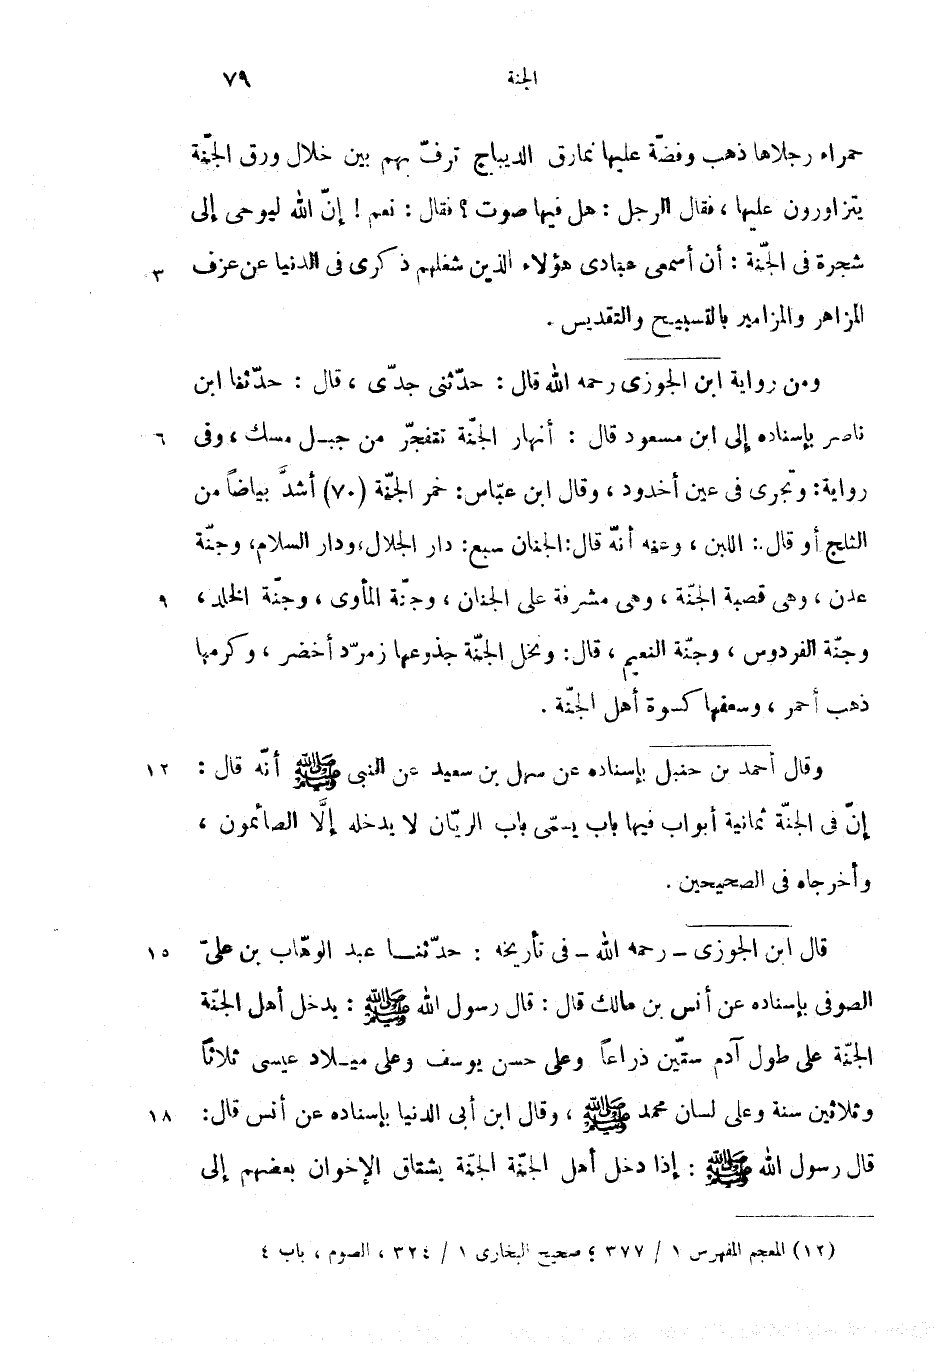 الجنة ٧٩
حمراء رجلاها ذهب وفضّة عليها نمارق الديباج ترفّ بهم بين خلال ورق الجنّة
يتزاورون عليها ، فقال الرجل : هل فيها صوت ؟ فقال : نعم ! إنّ الله ليوحى إلى
شجرة فى الجنّة : أن أسمعى عبادى هؤلاء الذين شغلهم ذكرى فى الدنيا عن عزف ٣
المزاهر والمزامير بالتسبيح والتقديس .
ومن رواية ابن الجوزى رحمه الله قال : حدّثنى جدّى ، قال : حدّثنا ابن
ناصر بإسناده إلى ابن مسعود قال : أنهار الجنّة تتفجّر من جبل مسك ، وفى ٦
رواية : وتجرى فى عين أخدود ، وقال ابن عبّاس : خمر الجنّة (٧٠) أشدَّ بياضاً من
الثلج أو قال : اللبن ، وعنه أنّه قال : الجنان سبع : دار الجلال ، ودار السلام ، وجنّة
عدن ، وهى قصبة الجنّة ، وهى مشرفة على الجنان ، وجنّة المأوى ، وجنّة الخلد ، ٩
وجنّة الفردوس ، وجنّة النعيم ، قال : ونخل الجنّة جذوعها زمرّد أخضر ، وكرمها
ذهب أحمر ، وسعفها كسوة أهل الجنّة .
وقال أحمد بن حنبل بإسناده عن سهل بن سعيد عن النبى ﷺ أنّه قال : ١٢
إنّ فى الجنّة ثمانية أبواب فيها باب يسمّى باب الريّان لا يدخله إلَّا الصائمون ،
وأخرجاه فى الصحيحين .
قال ابن الجوزى – رحمه الله – فى تأريخه : حدّثنا عبد الوهّاب بن علىّ ١٥
الصوفى بإسناده عن أنس بن مالك قال : قال رسول الله ﷺ : يدخل أهل الجنّة
الجنّة على طول آدم ستّين ذراعاً وعلى حسن يوسف وعلى ميلاد عيسى ثلاثاً
وثلاثين سنة وعلى لسان محمد ﷺ ، وقال ابن أبى الدنيا بإسناده عن أنس قال : ١٨
قال رسول الله ﷺ : إذا دخل أهل الجنّة الجنّة يشتاق الإخوان بعضهم إلى
(١٢) المعجم المفهرس ١ / ٣٧٧ ؛ صحيح البخارى ١ / ٣٢٤ ، الصوم ، باب ٤